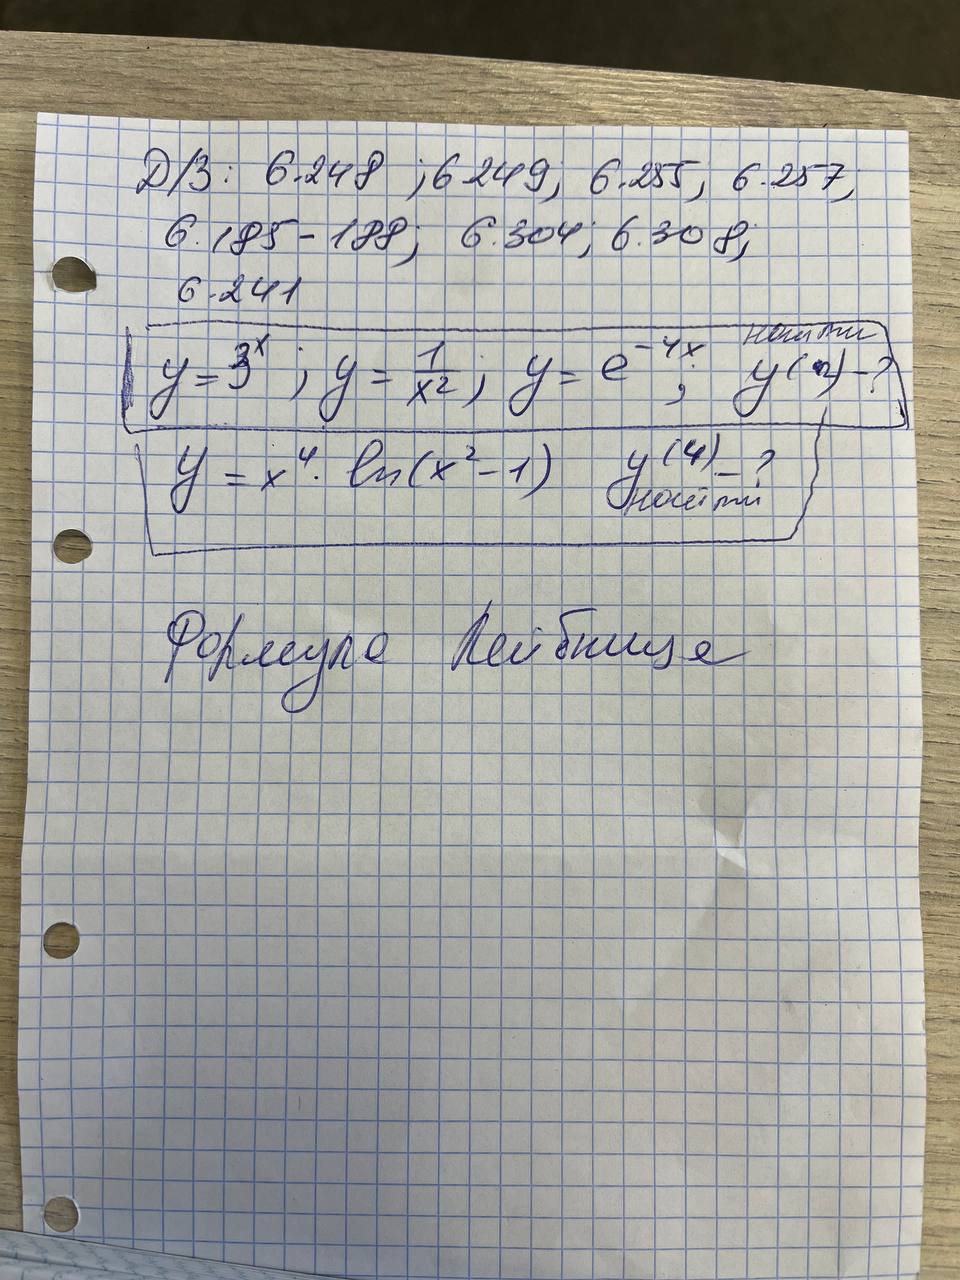 Д/З: 6.248 ; 6 249; 6.255, 6.257;
6.185-188; 6.304; 6.308;
6.241
найти
y = 3^x ; y = 1/x^2 ; y = e^-4x ; y^(n) - ?
y = x^4 · ln(x^2 - 1) y^(4) - ?
найти
Формула Лейбница